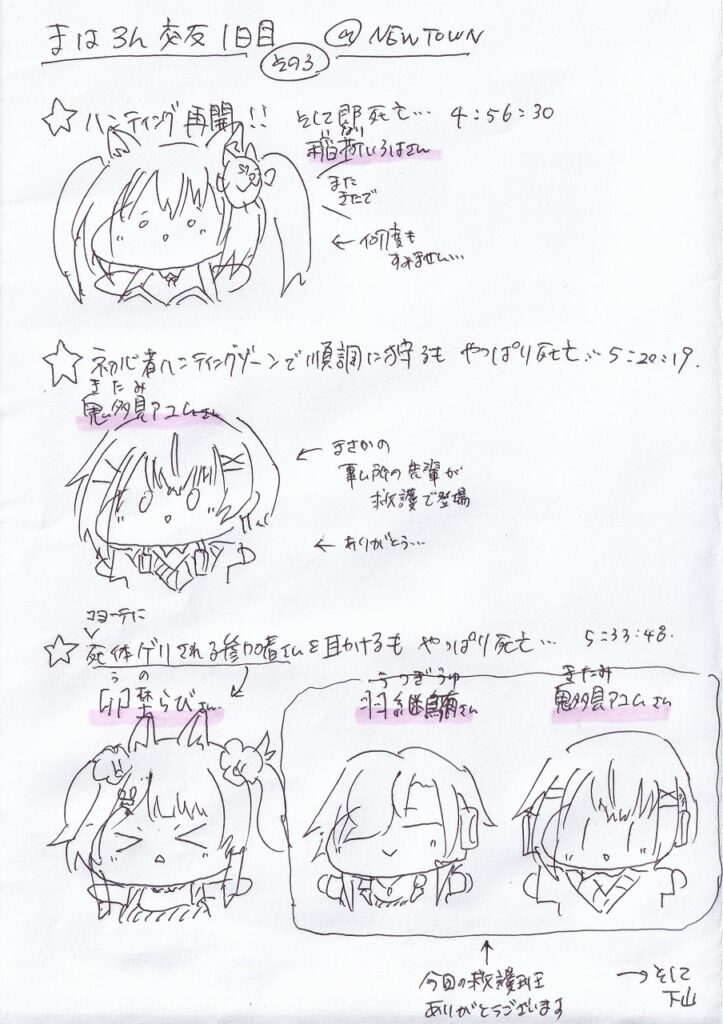 まはろん 交反 1日目 @ NEWTOWN
その3
☆ ハンティング 再開!! そして即死亡… 4:56:30
いなり
稲荷いろはさん
また
きたで
← 何度も
すみません…
☆ 初心者ハンティングゾーンで順調に狩るも やっぱり死亡… 5:20:19.
きたみ
鬼多見アユムさん
← まさかの
事ム所の先輩が
救護で登場
← ありがとう…
コヨーテに
☆ 死体ゲリされる参加者さんを助けるも やっぱり死亡… 5:33:48.
うの
卯埜らびさん
うつぎうゆ
羽継鱬さん
きたみ
鬼多見アユムさん
今回の救護班王
ありがとうございます
→ そして
下山